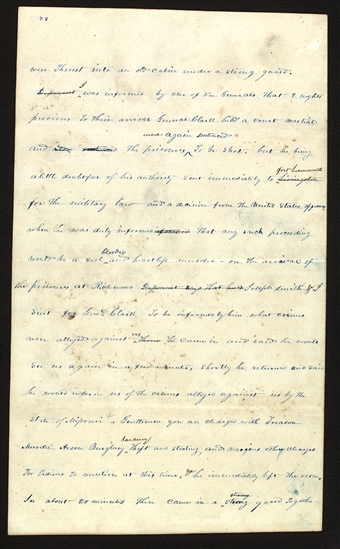 28
were Thrust into an old cabin under a strong guard.
Deponent I was informed by one of the Generals that 2 nights
previous to their arrival General Clark held a court martial
were again sentenced
and the prisoners To be shot, but he being
a little doubtful of his authority sent immediately to Fort Leavenworth Livingston
for the military law and a decision from the United States officers
when he was duly informed that any such proceeding
would be a cool blooded and heartless murder - on the arrival of
the prisoners at Richmond Deponent says that Joseph Smith & I
sent for Genl Clark To be informed by him what crimes
were alleged against us them he came in and said he would
see us again in a few minutes, shortly he returned and said
he would inform us of the crimes alleged against us by the
State of Missouri - Gentlemen you are charged with Treason
Murder Arson Burglary larceny Theft and stealing, and various other charges
Too tedious To mention at this time, & he immediately left the room,
In about 20 minutes There came in a strong strong guard Together